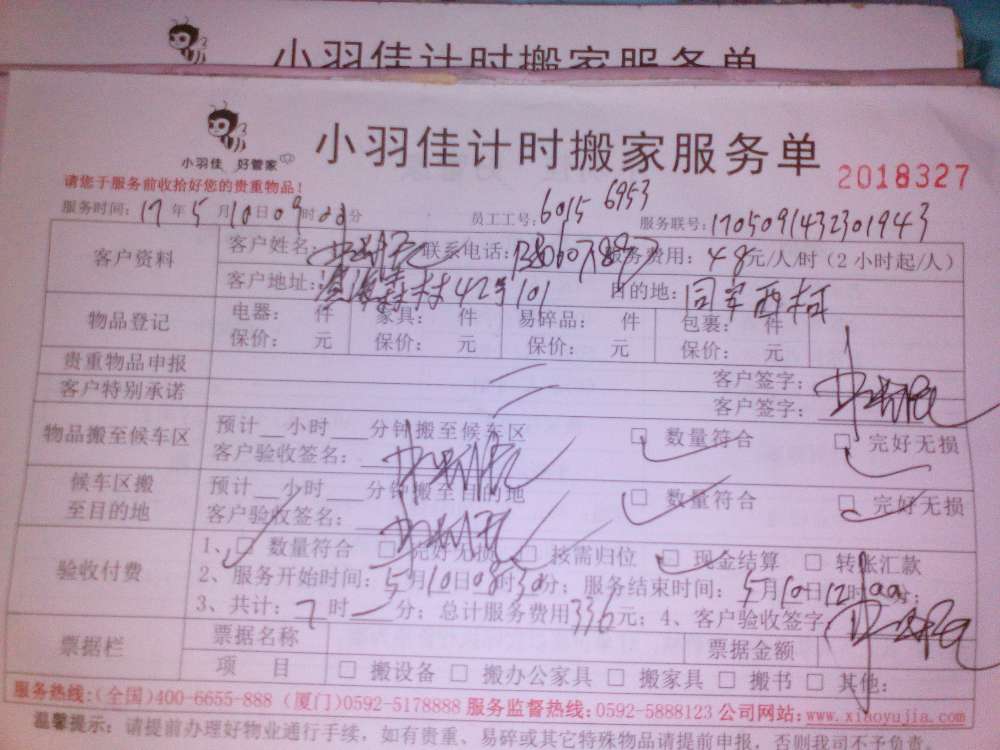 小羽佳计时搬家服务单
小羽佳 好管家
小羽佳计时搬家服务单
2018327
请您于服务前收拾好您的贵重物品！
服务时间：17年5月10日09时 分 员工工号：6015 6953 服务联号：1705091432301943
客户资料 客户姓名： 联系电话： 服务费用：48元/人/时（2小时起/人）
客户地址： 村42号101 目的地：同安西柯
物品登记 电器： 件 家具： 件 易碎品： 件 包裹： 件
保价： 元 保价： 元 保价： 元 保价： 元
贵重物品申报 客户签字：
客户特别承诺 客户签字：
物品搬至候车区 预计__小时___分钟搬至候车区 □ 数量符合 □ 完好无损
客户验收签名：
候车区搬至目的地 预计__小时___分钟搬至目的地 □ 数量符合 □ 完好无损
客户验收签名：
验收付费 1、□ 数量符合 □ 完好无损 □ 按需归位 □ 现金结算 □ 转账汇款
2、服务开始时间：5月10日08时30分；服务结束时间：5月10日12时00分；
3、共计：7时 分；总计服务费用336元；4、客户验收签字
票据栏 票据名称 票据金额
项 目 □ 搬设备 □ 搬办公家具 □ 搬家具 □ 搬书 □ 其他：
服务热线：（全国）400-6655-888（厦门）0592-5178888 服务监督热线：0592-5888123 公司网站：www.xiaoyujia.com
温馨提示：请提前办理好物业通行手续，如有贵重、易碎或其它特殊物品请提前申报，否则我司不予负责